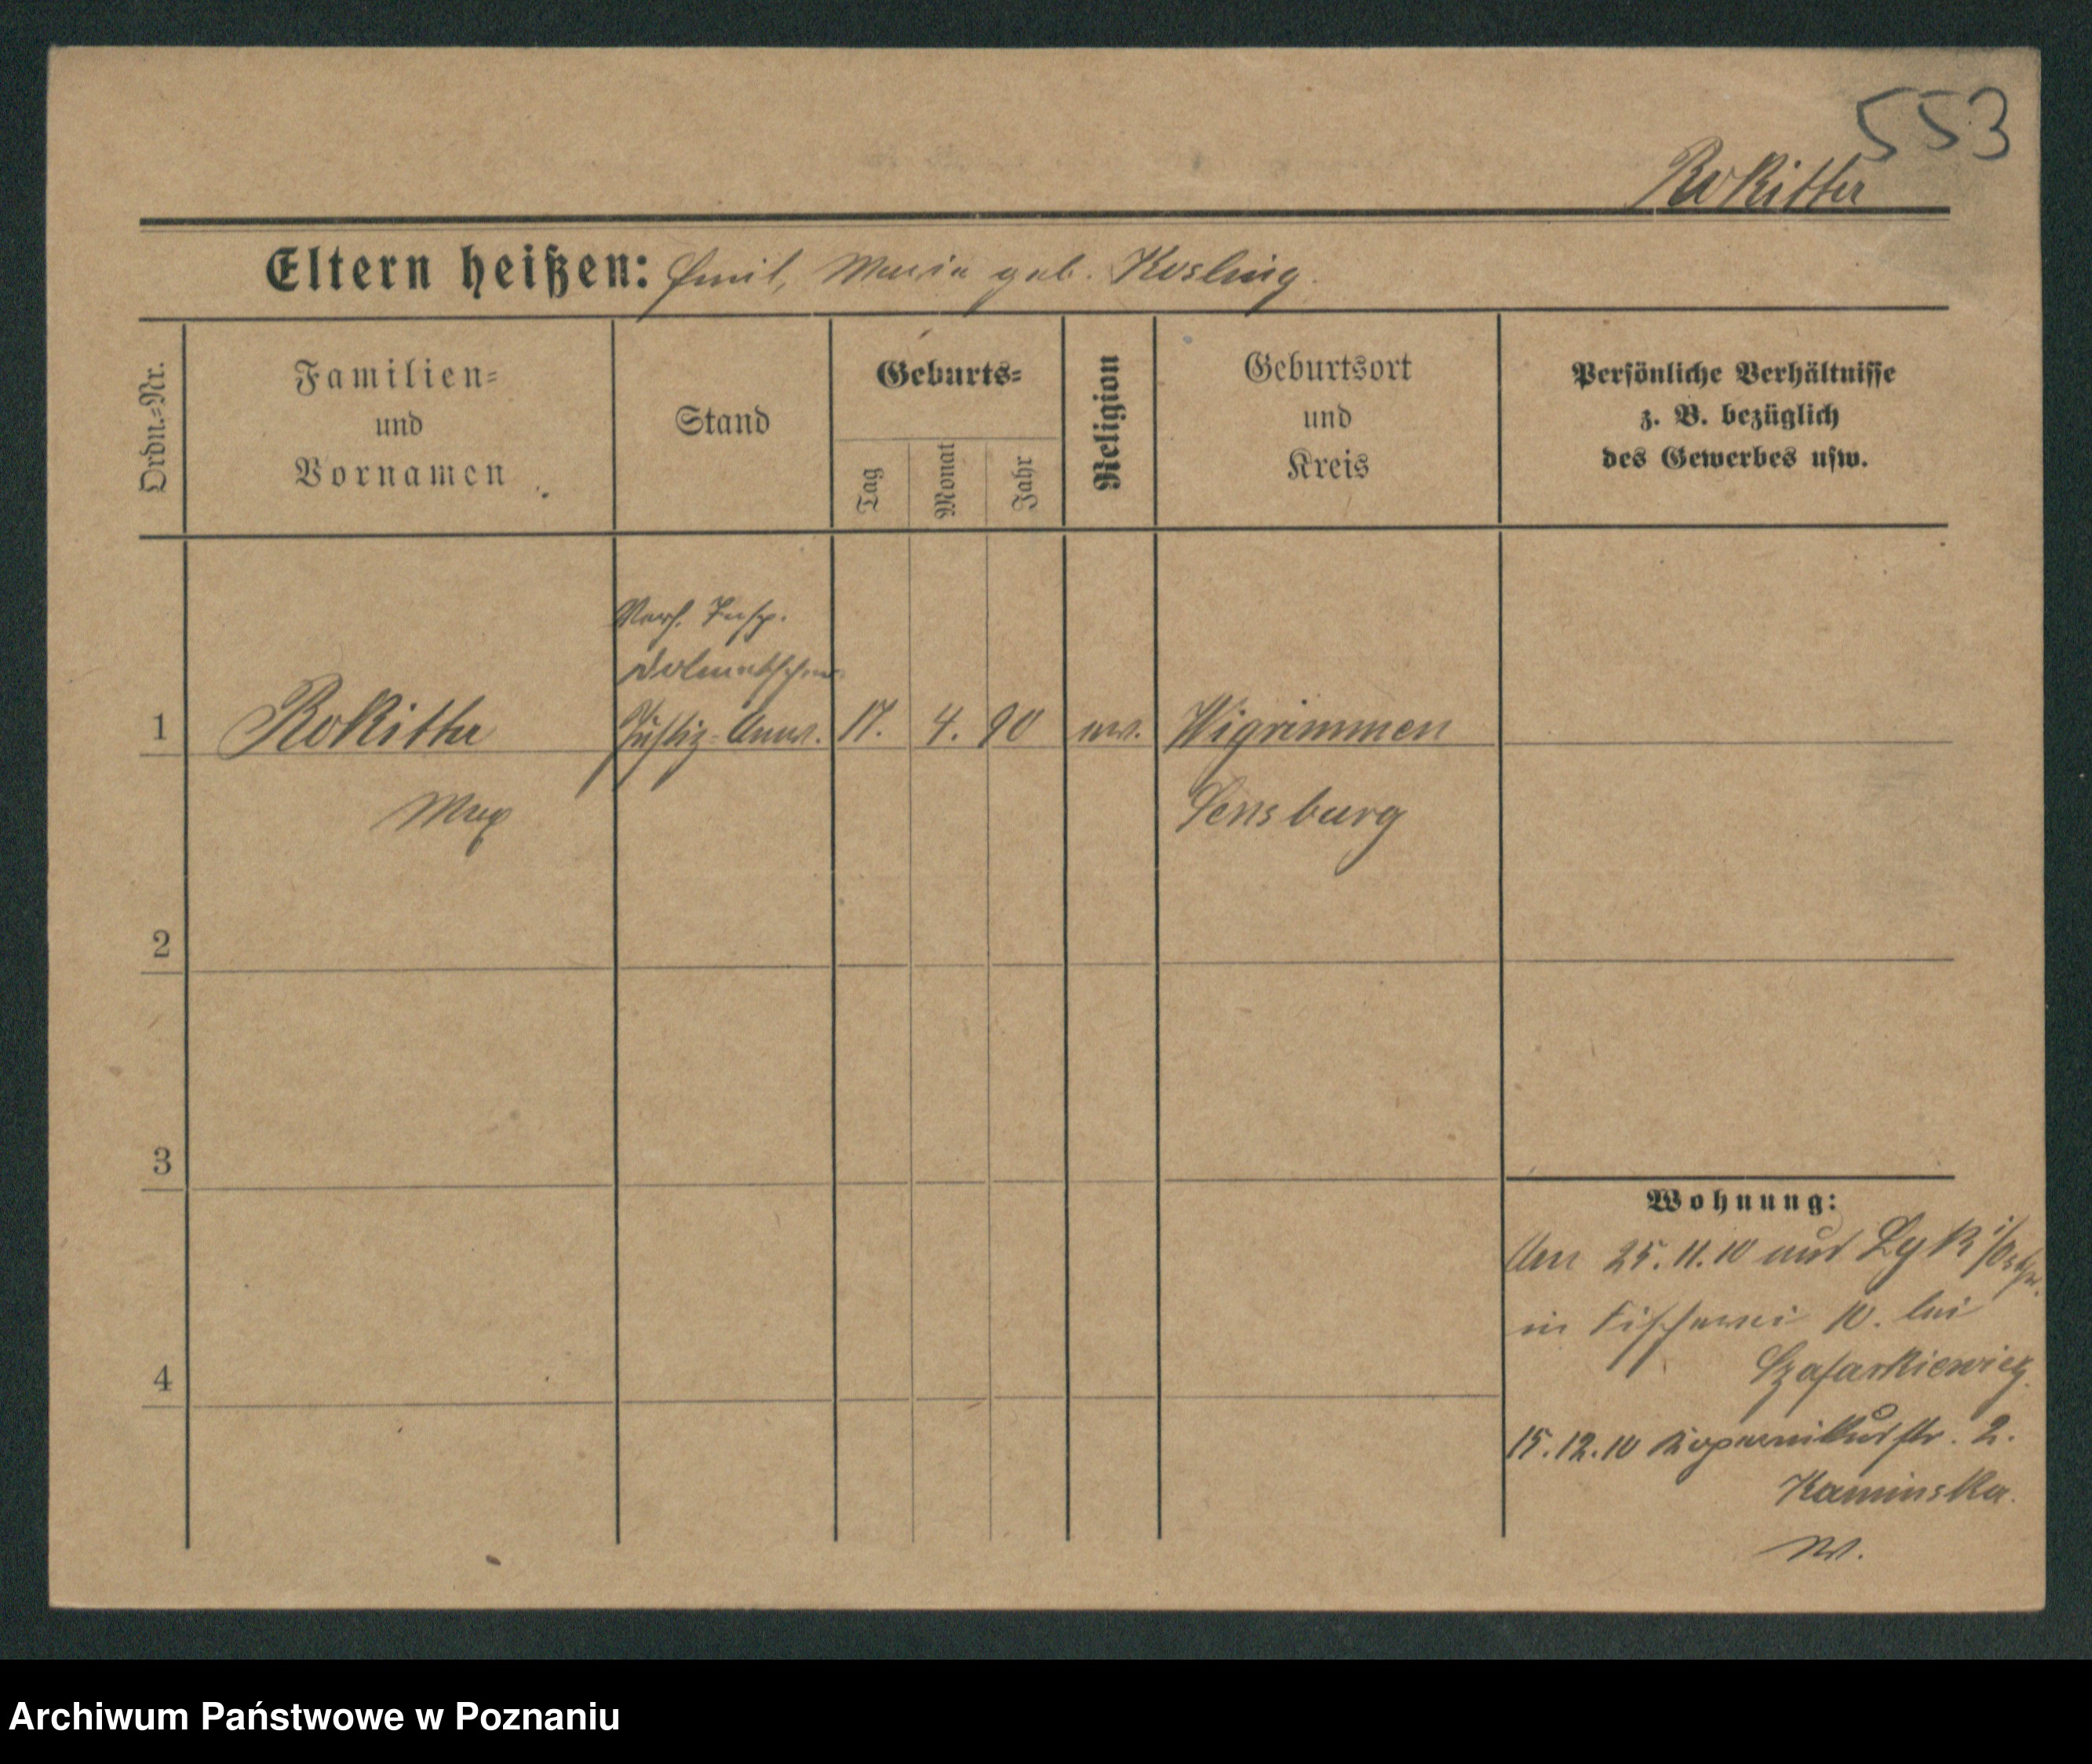 553
Rokitta
Eltern heißen: Emil, Maria geb. Kosling.
Ordn.=Nr.
Familien=
und
Vornamen
Stand
Geburts=
Tag
Monat
Jahr
Religion
Geburtsort
und
Kreis
Persönliche Verhältnisse
z. B. bezüglich
des Gewerbes usw.
Insp.
Dolmetscher
1 Rokitta Justiz-Anw. 17. 4. 90 ev. Wigrinnen
Max Sensburg
2
3
4
Wohnung:
Am 25.11.10 aus Lyk i/Ostpr.
in Fischerei 10. bei
Szafarkiewicz.
15.12.10 Kopernikusstr. 2.
Kaminska.
Archiwum Państwowe w Poznaniu